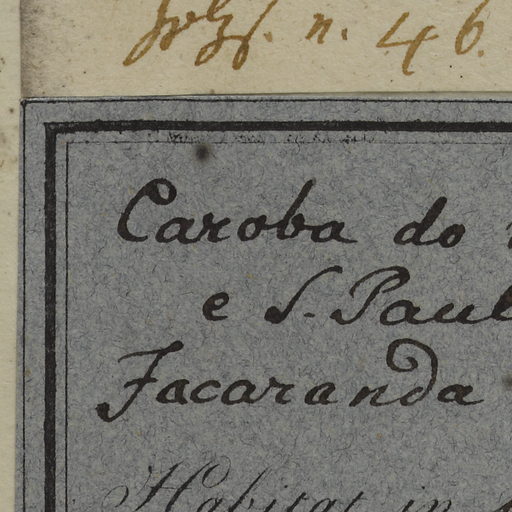 n. 46.
Caroba do
e S. Paul
Jacaranda
Habitat in